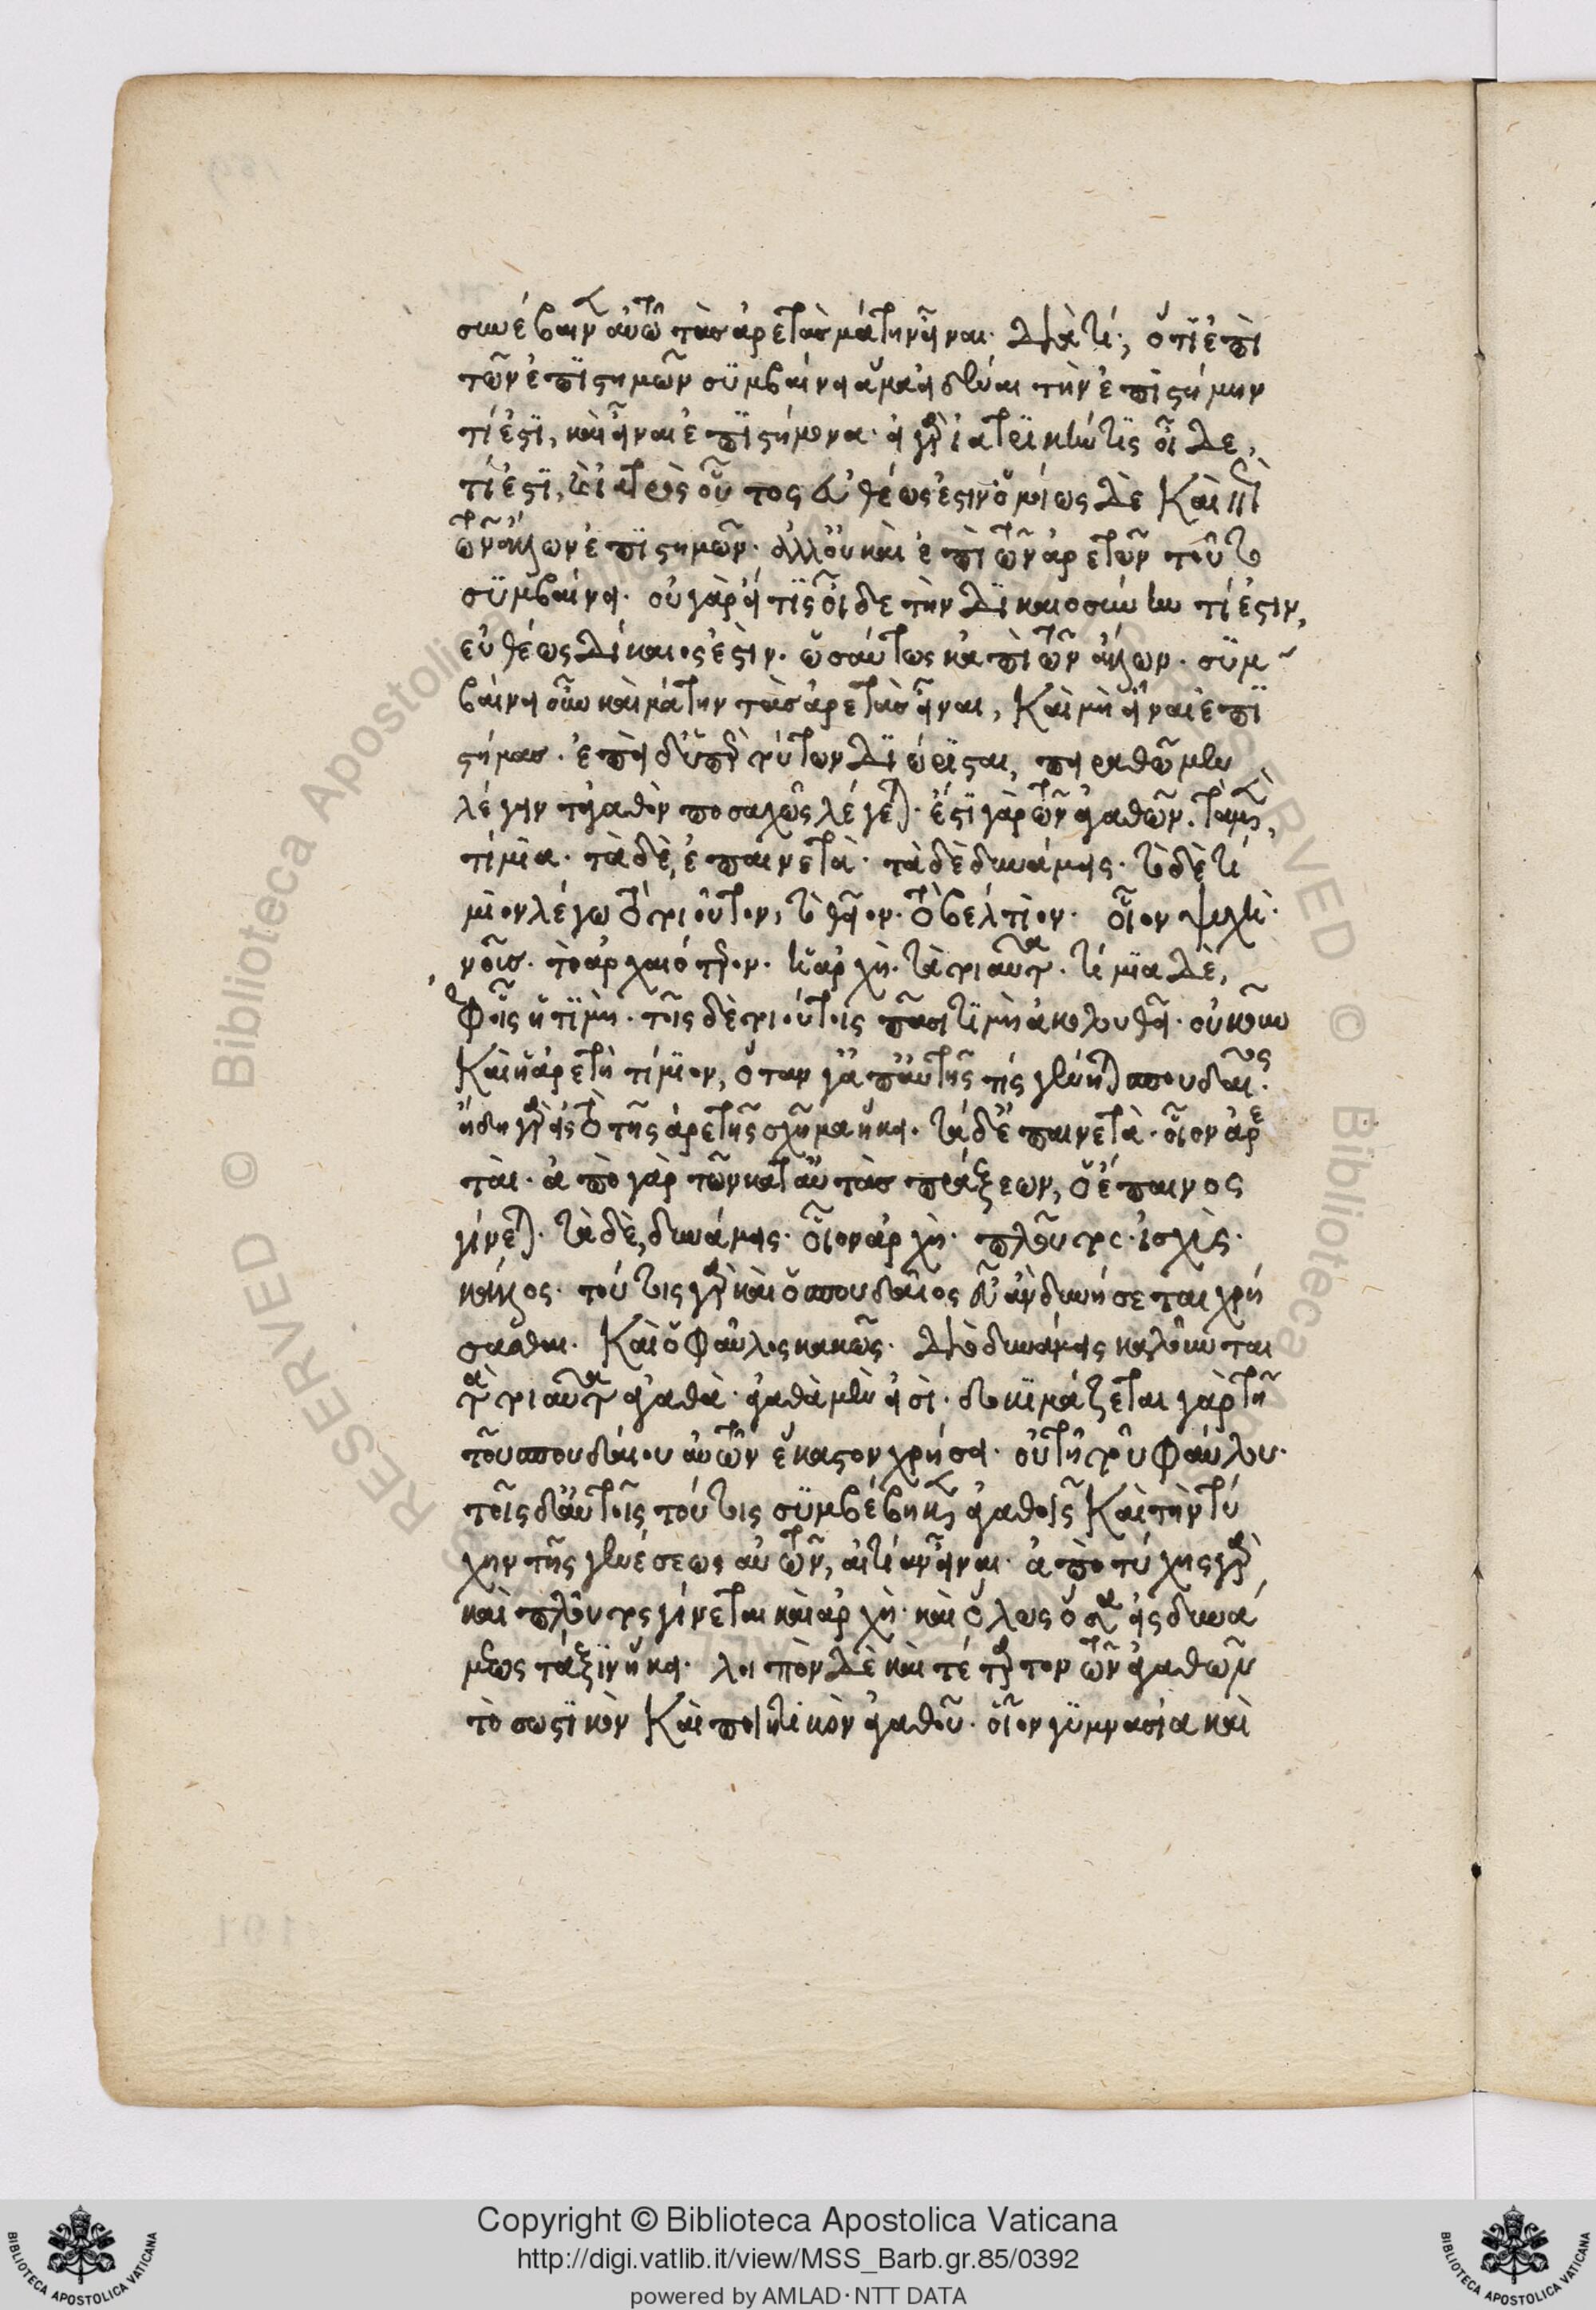 συνέβαινεν αὐτῷ τὰς ἀρετὰς μάτην εἶναι. Διὰ τί; ὅτι ἐπὶ
τῶν ἐπιστημῶν συμβαίνει ἅμα εἰδέναι τὴν ἐπιστήμην
τί ἐστι, καὶ εἶναι ἐπιστήμονα. εἰ γὰρ ἰατρικήν τις οἶδε,
τί ἐστι, καὶ ἰατρὸς οὗτος εὐθέως ἐστιν. ὁμοίως δὲ καὶ ἐπὶ
τῶν ἄλλων ἐπιστημῶν. ἀλλ' οὐκὶ ἐπὶ τῶν ἀρετῶν τοῦτο
συμβαίνει. οὐ γὰρ εἴ τις οἶδε τὴν δικαιοσύνην τί ἐστιν,
εὐθέως δίκαιος ἐστίν. ὡσαύτως κἀπὶ τῶν ἄλλων. συμ
βαίνει οὖν καὶ μάτην τὰς ἀρετὰς εἶναι, καὶ μὴ εἶναι ἐπι
στήμας. ἐπεὶ δ' ὑπὲρ τούτων διώρισται, πειραθῶμεν
λέγειν τἀγαθὸν ποσαχῶς λέγεται. ἔστι γὰρ τῶν ἀγαθῶν τὰ μὲν,
τίμια. τὰ δὲ, ἐπαινετὰ. τὰ δὲ δυνάμεις. τὸ δὲ τί
μιον λέγω τὸ τοιοῦτον, τὸ θεῖον. τὸ βέλτιον. οἷον ψυχὴ.
νοῦς. τὸ ἀρχαιότερον. ἡ ἀρχὴ. τὰ τοιαῦτα. τίμια δὲ,
ἐφ' οἷς ἡ τιμὴ. τοῖς δὲ τοιούτοις πᾶσι τιμὴ ἀκολουθεῖ. οὐκοῦν
καὶ ἡ ἀρετὴ τίμιον, ὅταν γε ἀπ' αὐτῆς τίς γένηται σπουδαῖος.
ἤδη γὰρ εἰς τὸ τῆς ἀρετῆς σχῆμα ἥκει. τὰ δ' ἐπαινετὰ. οἷον ἀρε
ταὶ. ἀπὸ γὰρ τῶν κατ' αὐτὰς πράξεων, ὁ ἔπαινος
γίνεται. τὰ δὲ, δυνάμεις. οἷον ἀρχὴ. πλοῦτος. ἰσχὺς.
κάλλος. τούτοις γὰρ καὶ ὁ σπουδαῖος εὖ ἂν δυνήσεται χρή
σασθαι. καὶ ὁ φαῦλος κακῶς. Διὸ δυνάμεις καλοῦνται
τὰ τοιαῦτα ἀγαθὰ. ἀγαθὰ μὲν εἰσὶ. δοκιμάζεται γὰρ τῇ
τοῦ σπουδαίου αὐτῶν ἕκαστον χρήσει. οὐ τῇ τοῦ φαύλου.
τοῖς δ' αὐτοῖς τούτοις συμβέβηκεν ἀγαθοῖς καὶ τὴν τύ
χην τῆς γενέσεως αὐτῶν, αἰτίαν εἶναι. ἀπὸ τύχης γὰρ
καὶ πλοῦτος γίνεται καὶ ἀρχὴ. καὶ ὅλως ὅσα εἰς δυνά
μεως τάξιν ἥκει. λοιπὸν δὲ καὶ τέταρτον τῶν ἀγαθῶν
τὸ σωστικὸν καὶ ποιητικὸν ἀγαθοῦ. οἷον γυμνασία καὶ
Copyright © Biblioteca Apostolica Vaticana
http://digi.vatlib.it/view/MSS_Barb.gr.85/0392
powered by AMLAD·NTT DATA